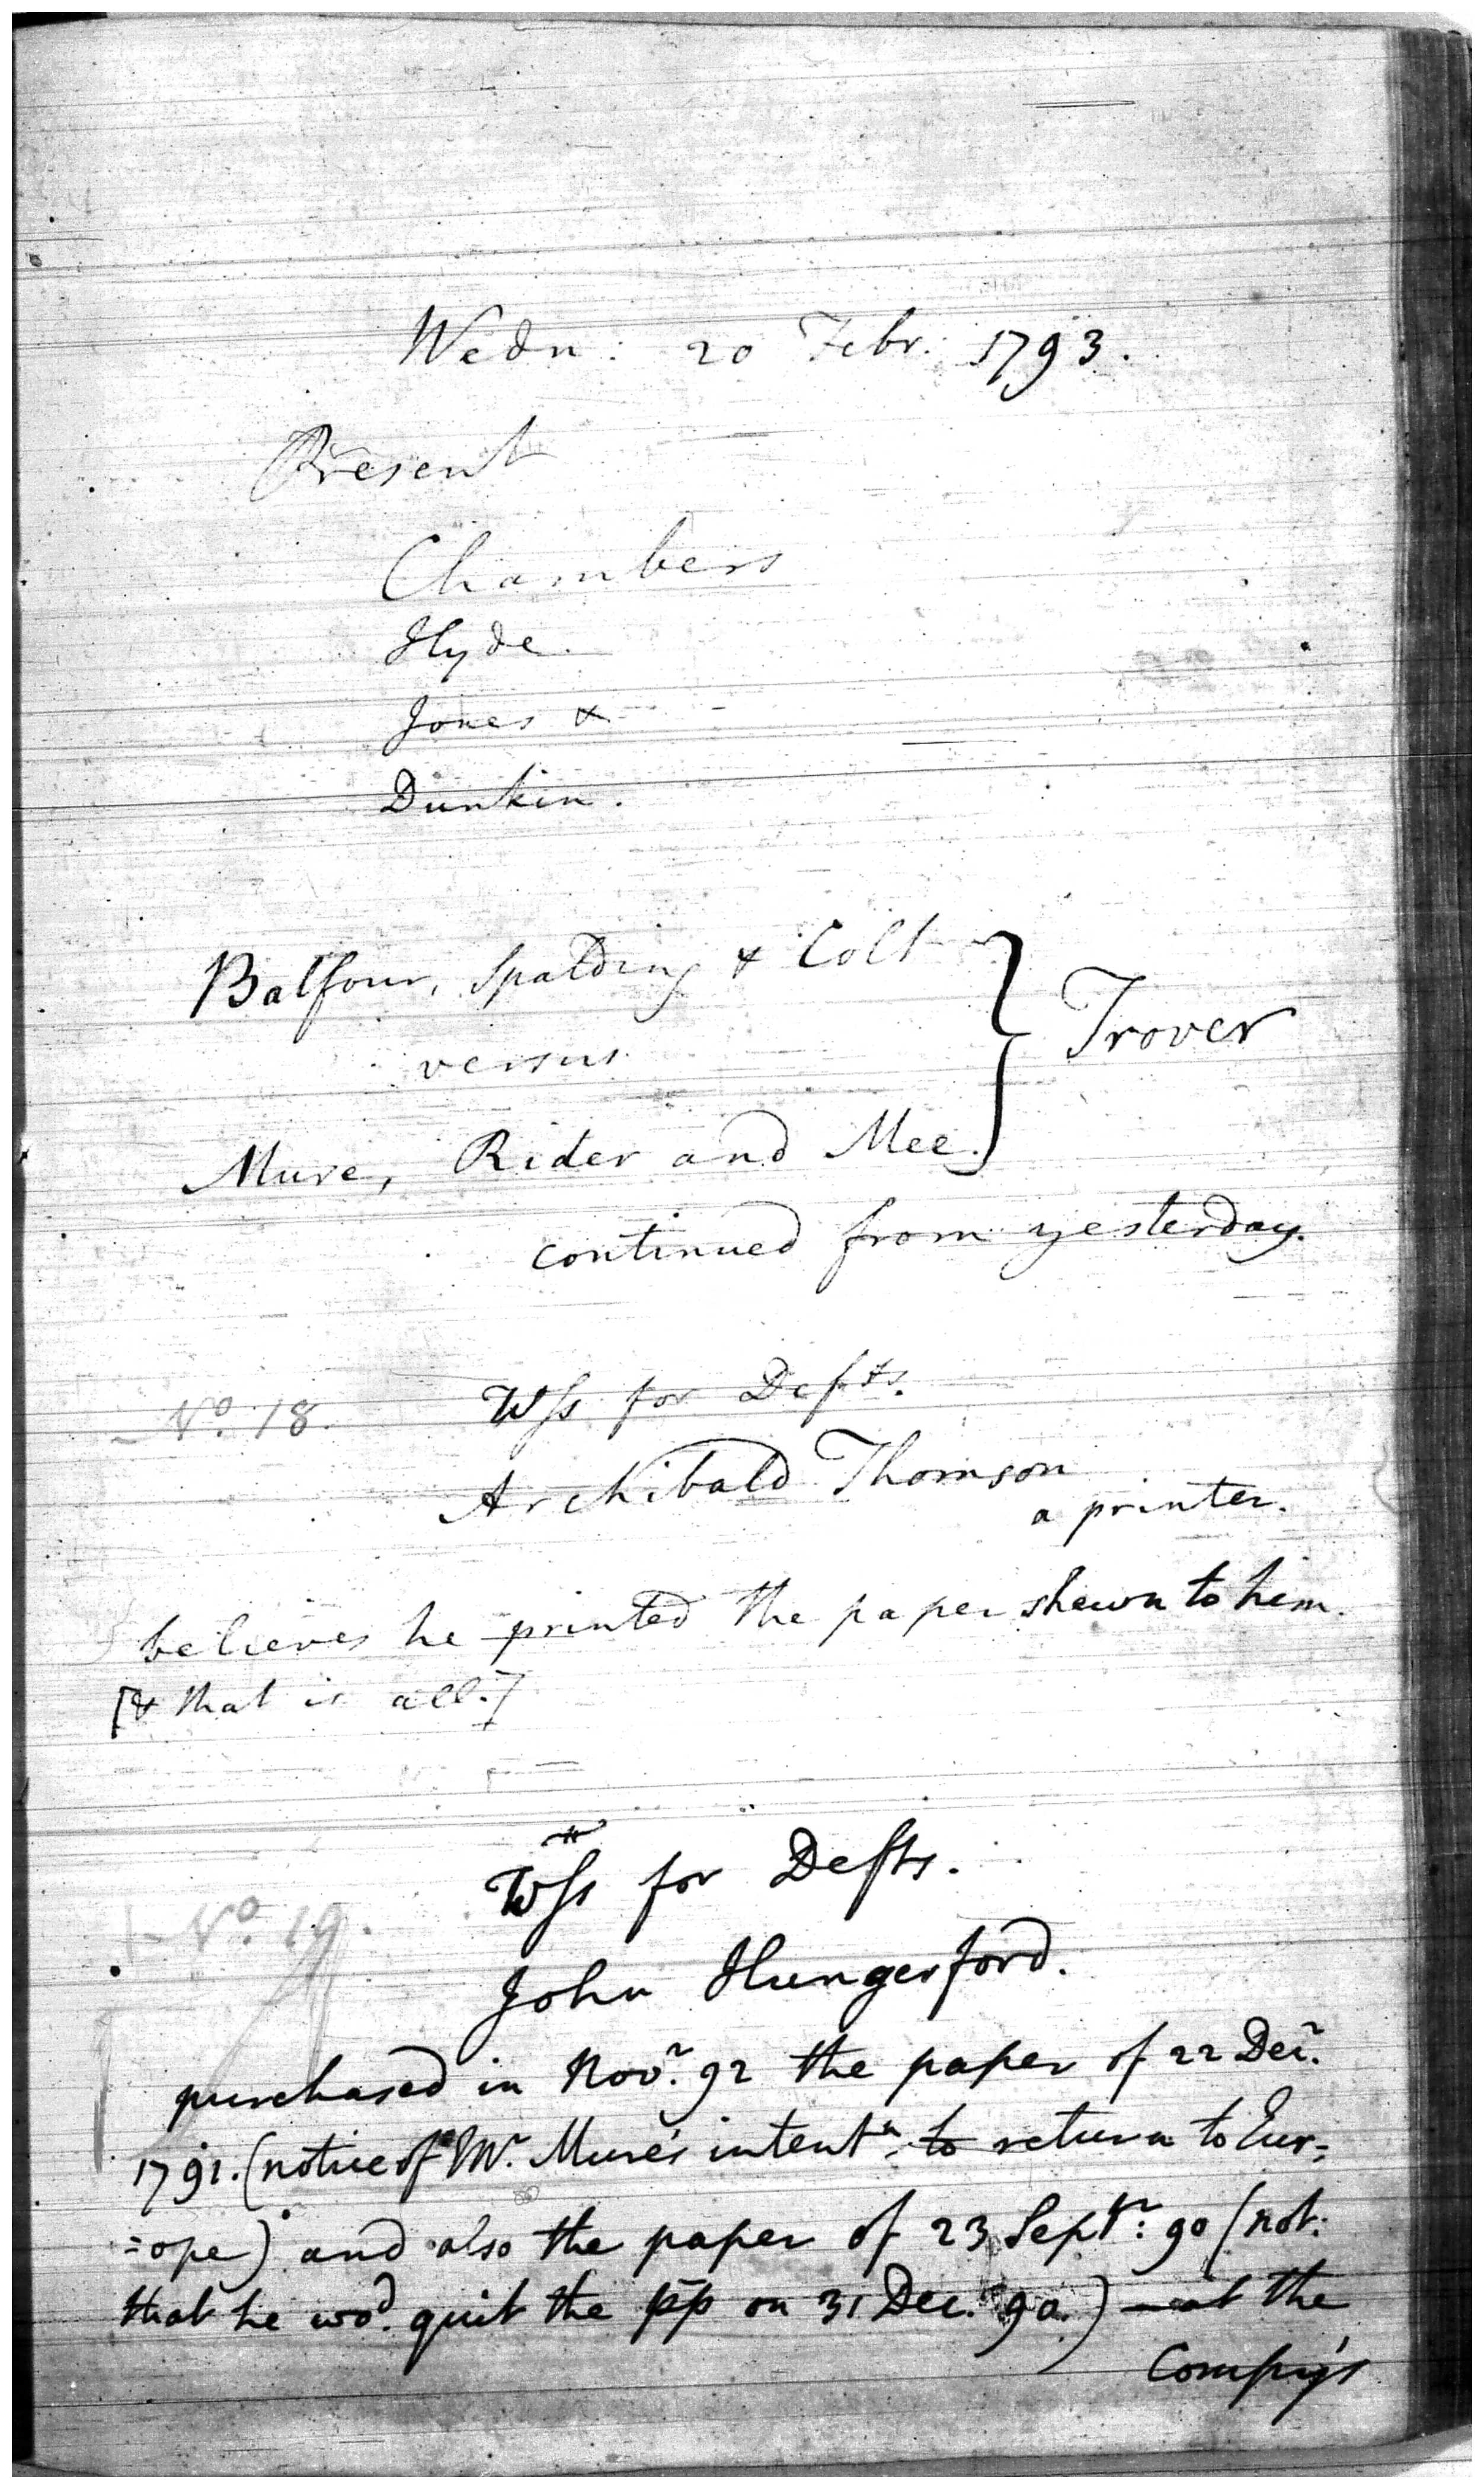 Wedn: 20 Febr. 1793.
Present
Chambers
Hyde.
Jones &
Dunkin.
Balfour, Spalding & Colt } Trover
versus
Mure, Rider and Mee.
continued from yesterday.
No. 18. Wss for Defts.
Archibald Thomson
a printer.
believes he printed the paper shewn to him.
[& that is all.]
Wss for Defts.
No. 19.
John Hungerford.
purchased in Novr. 92 the paper of 22 Decr.
1791. (notice of Mr. Mure's intentn. to return to Eur=
=ope) and also the paper of 23 Septr: 90 (not:
that he wod. quit the pp on 31 Dec. 90.) at the
Compy's